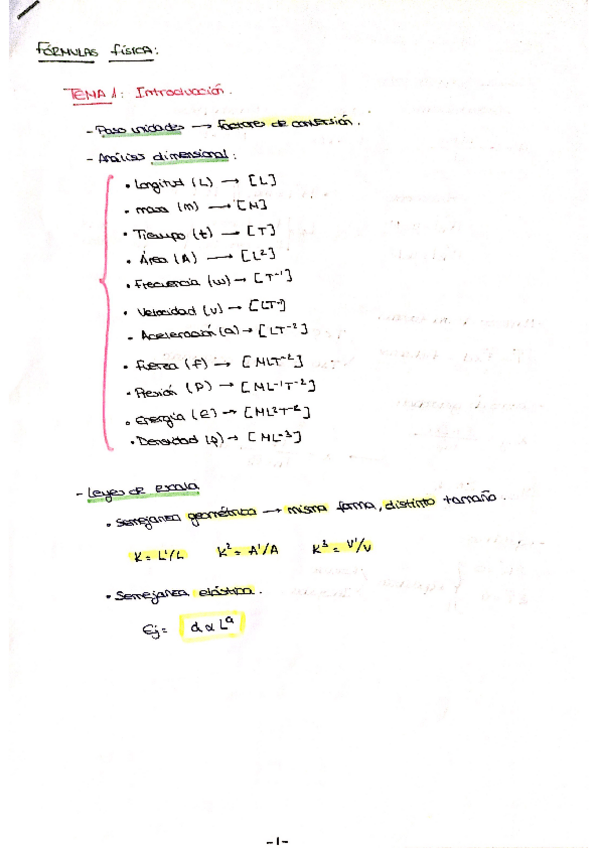 FÓRMULAS FÍSICA:
TEMA 1: Introducción.
- Paso unidades → factores de conversión.
- Análisis dimensional:
• Longitud (L) → [L]
• masa (m) → [M]
• Tiempo (t) → [T]
• Área (A) → [L²]
• Frecuencia (w) → [T⁻¹]
• Velocidad (v) → [LT⁻¹]
• Aceleración (a) → [LT⁻²]
• Fuerza (F) → [MLT⁻²]
• Presión (P) → [ML⁻¹T⁻²]
• Energía (E) → [ML²T⁻²]
• Densidad (ρ) → [ML⁻³]
- Leyes de escala
• Semejanza geométrica → misma forma, distinto tamaño.
K = L'/L K² = A'/A K³ = V'/V
• Semejanza elástica.
Ej = d α Lᵃ
-1-